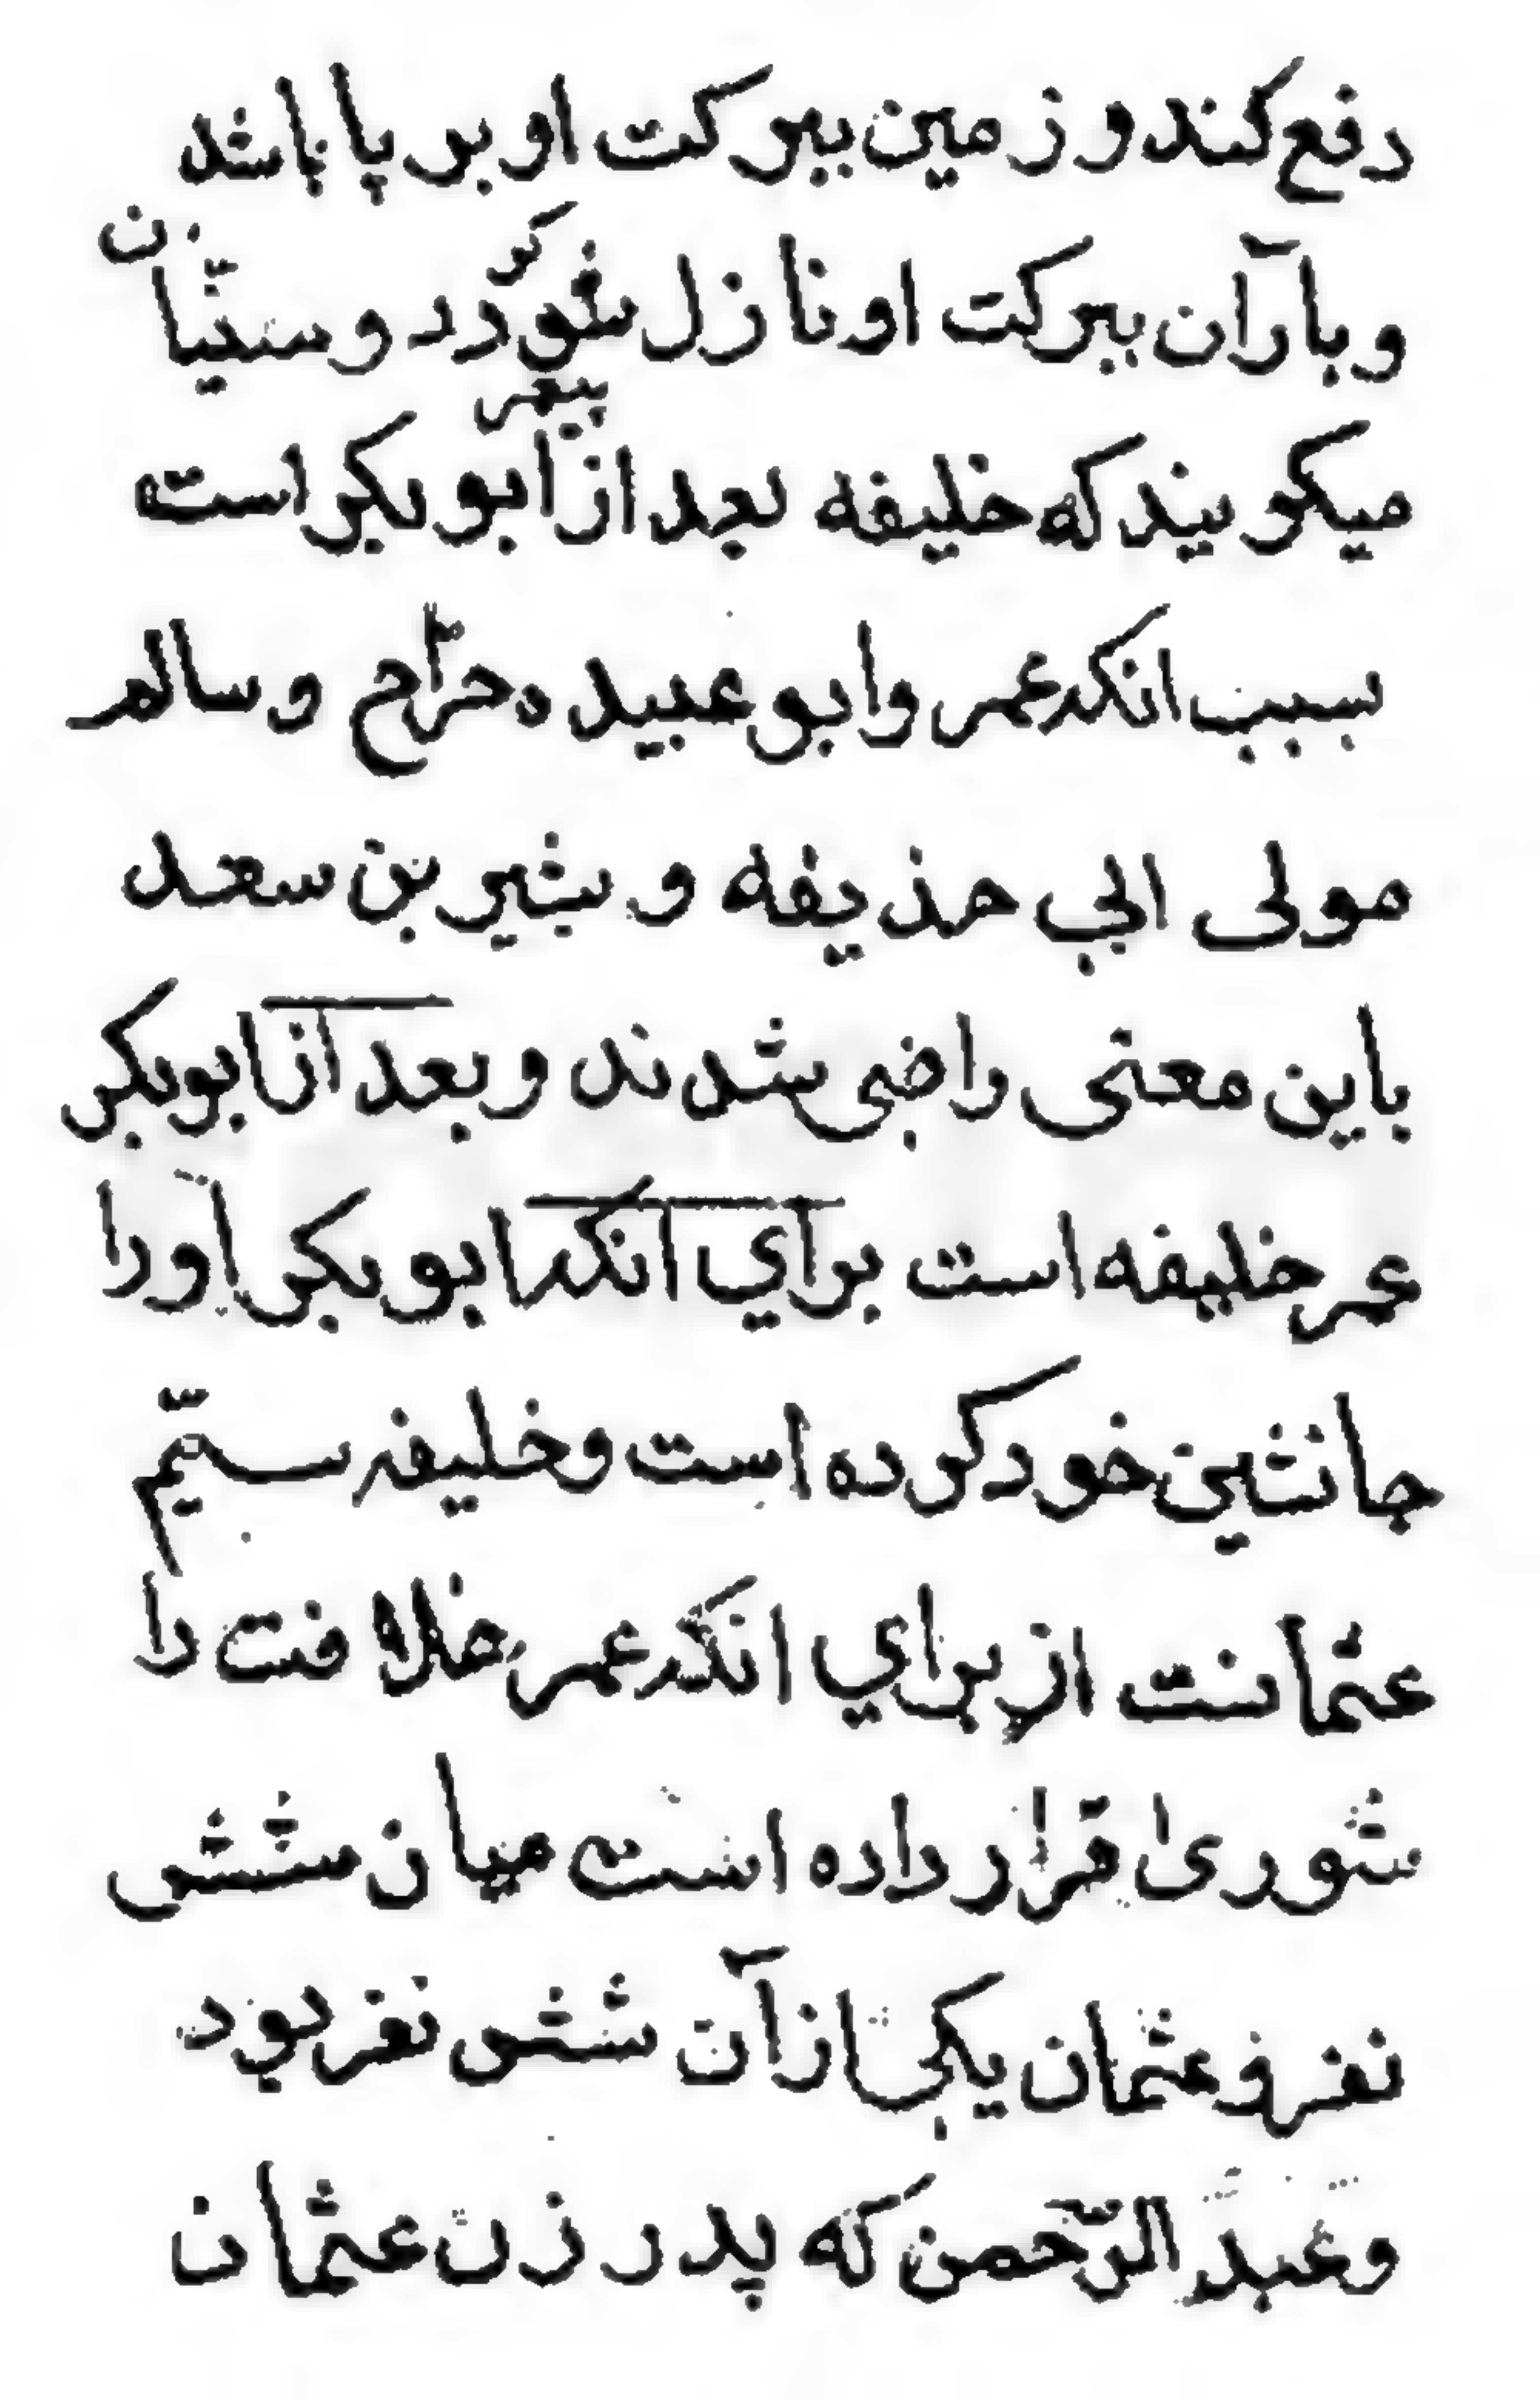 رفع كند و زمين ببركت او بر پا باشد
و بارآن ببركت او نازل شود گردد و سنيّان
ميكويند كه خليفه بعد از پيغمبر ابوبكر است
بسبب انكه عمر و ابو عبيده جرّاح و سالم
مولى ابي حذيفه و بشير بن سعد
باين معنى راضى شدند و بعد از ابوبكر
عمر خليفه است براي انكه ابوبكر او را
جانشين خود كرده است و خليفه سيّم
عثمانست از براي انكه عمر خلافت را
شورى قرار داده است ميان شش
نفر و عثمان يكى از آن شش نفر بود
و عبد الرّحمن كه پدر زن عثمان